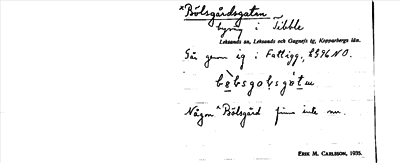 *Bölsgårdsgatan
byväg i Tibble
Leksands sn, Leksands och Gagnefs tg, Kopparbergs län.
Går genom ig i Fattigg., 
Någon *Bölsgård finns inte nu.
ERIK M. CARLSSON, 1935.